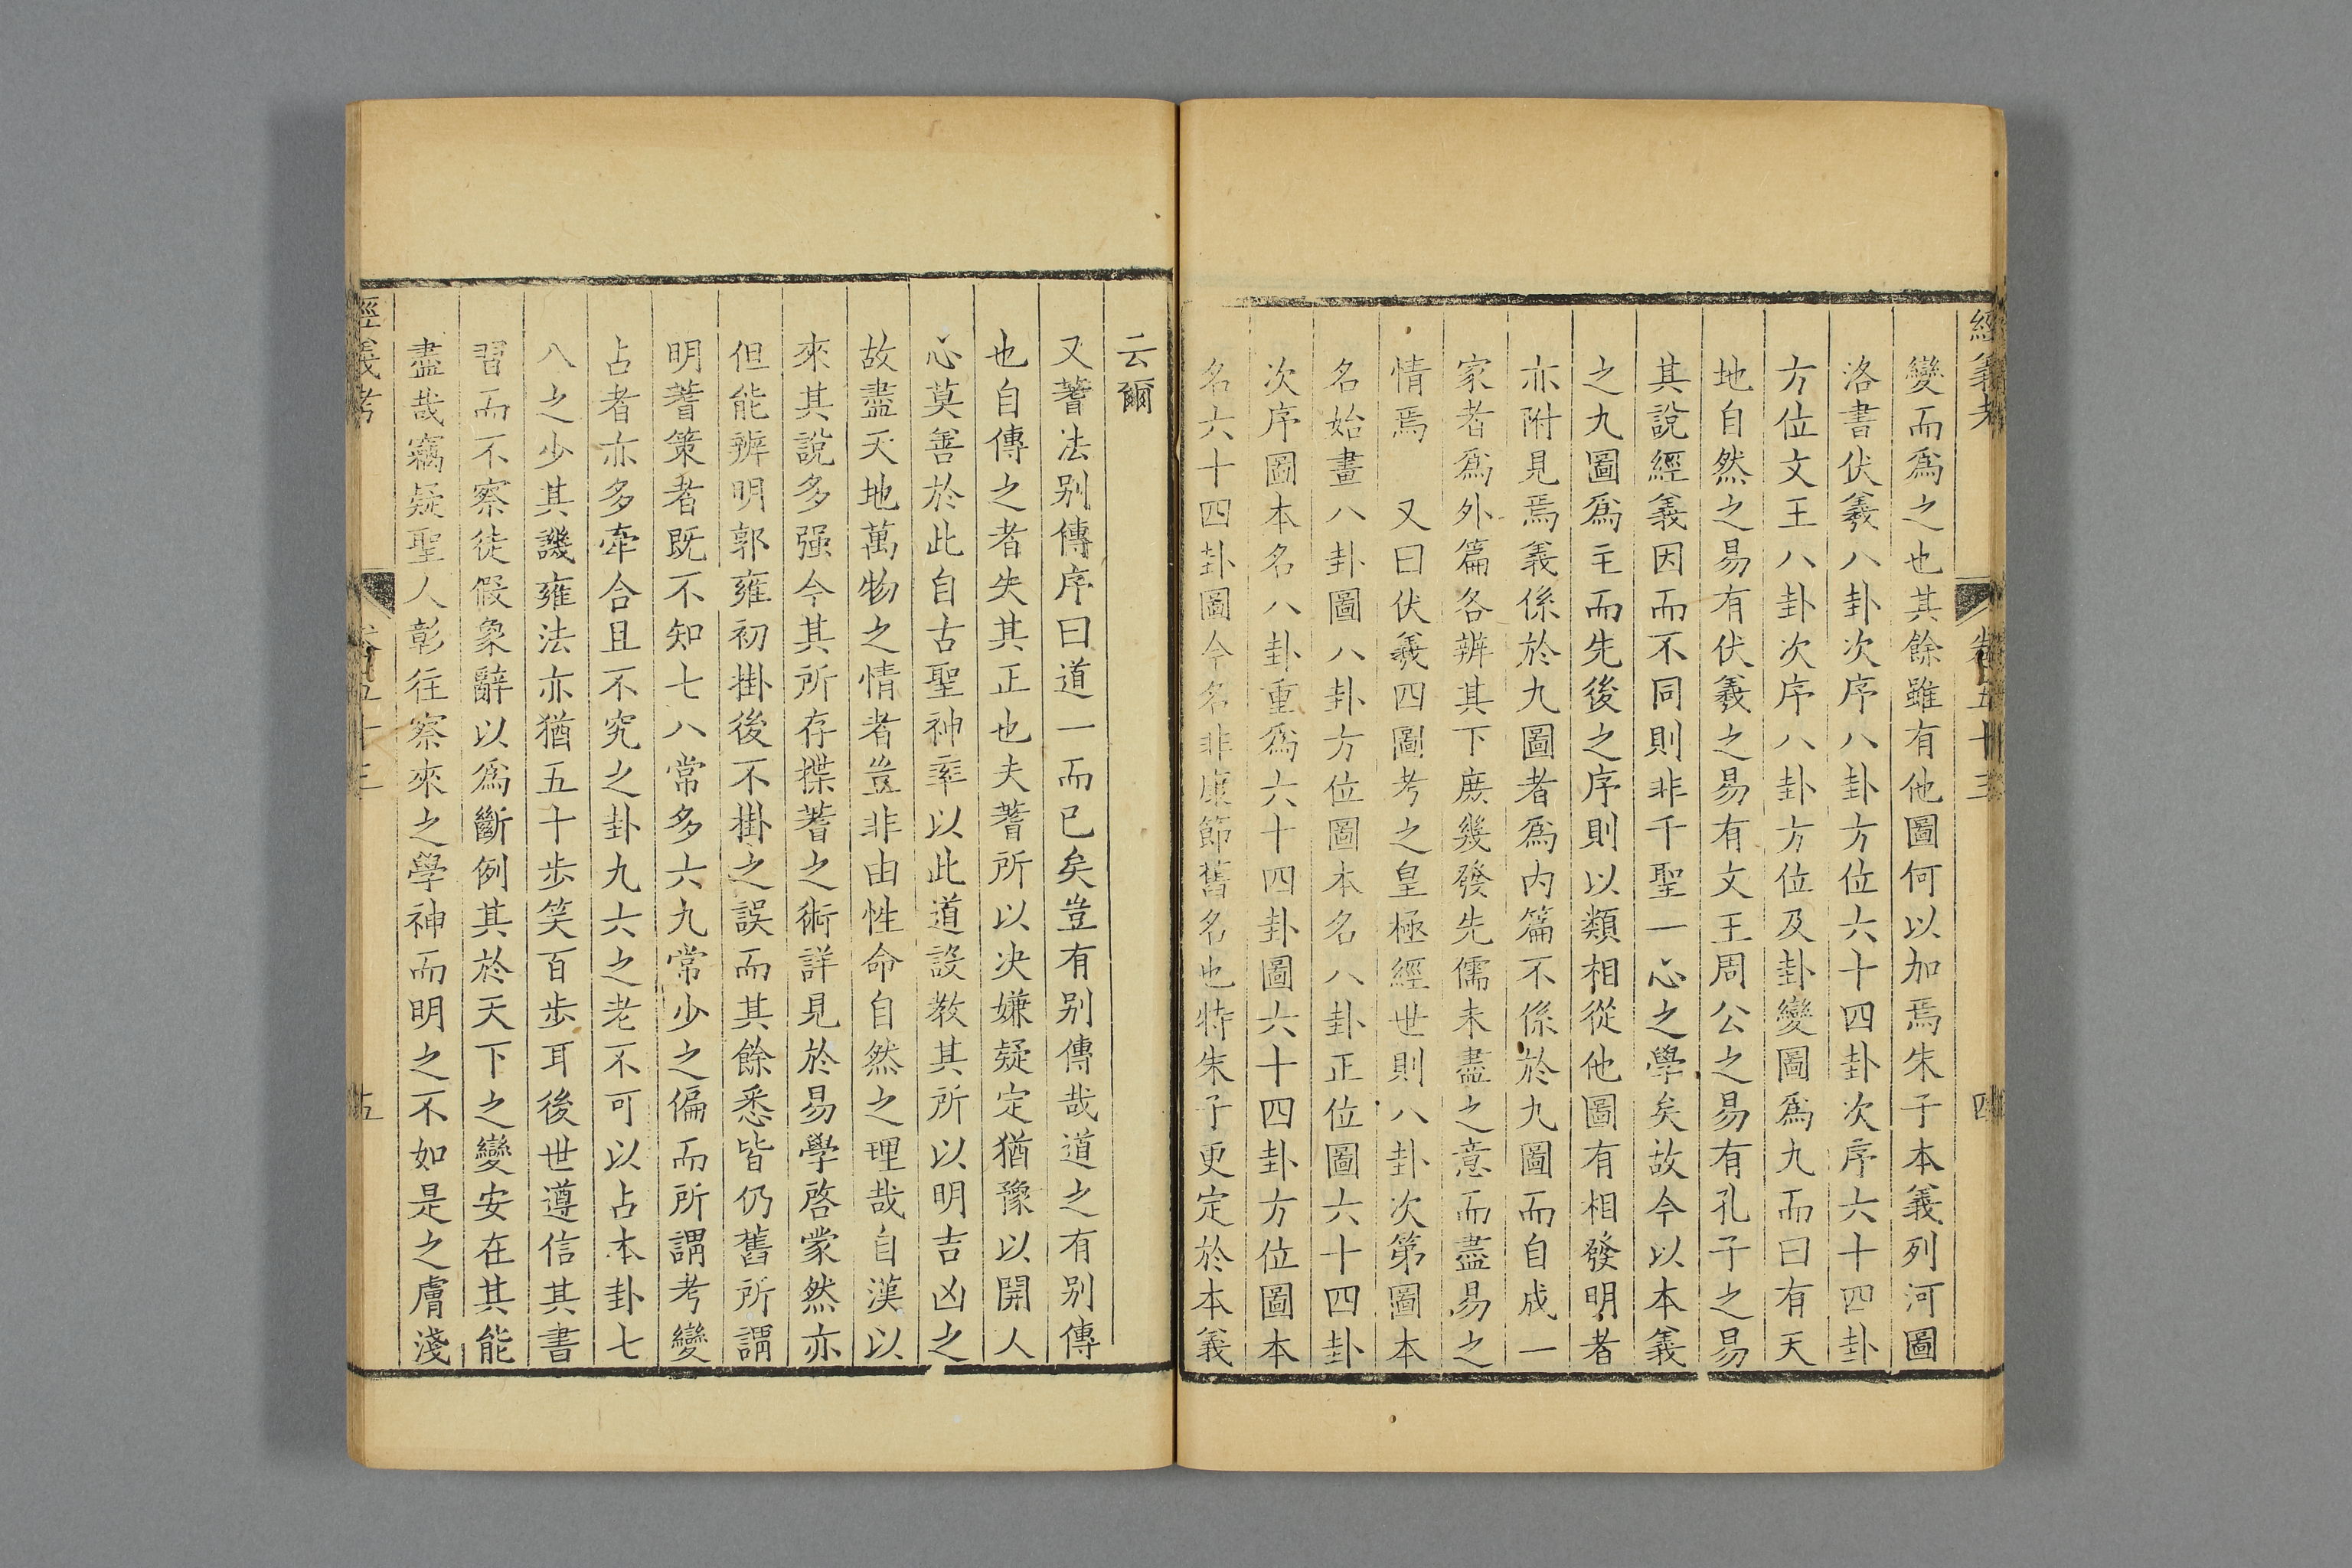 經義考 卷五十三 四
變而爲之也其餘雖有他圖何以加焉朱子本義列河圖
洛書伏羲八卦次序八卦方位六十四卦次序六十四卦
方位文王八卦次序八卦方位及卦變圖爲九而曰有天
地自然之易有伏羲之易有文王周公之易有孔子之易
其說經義因而不同則非千聖一心之學矣故今以本義
之九圖爲主而先後之序則以類相從他圖有相發明者
亦附見焉義係於九圖者爲内篇不係於九圖而自成一
家者爲外篇各辨其下庶幾發先儒未盡之意而盡易之
情焉 又曰伏羲四圖考之皇極經世則八卦次第圖本
名始畫八卦圖八卦方位圖本名八卦正位圖六十四卦
次序圖本名八卦重爲六十四卦圖六十四卦方位圖本
名六十四卦圖今名非康節舊名也特朱子更定於本義
云爾
又蓍法别傳序曰道一而已矣豈有别傳哉道之有别傳
也自傳之者失其正也夫蓍所以决嫌疑定猶豫以開人
心莫善於此自古聖神率以此道設教其所以明吉凶之
故盡天地萬物之情者豈非由性命自然之理哉自漢以
來其說多强今其所存揲蓍之術詳見於易學啓蒙然亦
但能辨明郭雍初掛後不掛之誤而其餘悉皆仍舊所謂
明蓍策者既不知七八常多六九常少之偏而所謂考變
占者亦多牽合且不究之卦九六之老不可以占本卦七
八之少其譏雍法亦猶五十步笑百步耳後世遵信其書
習而不察徒假象辭以爲斷例其於天下之變安在其能
盡哉竊疑聖人彰往察來之學神而明之不如是之膚淺
經義考 卷五十三 五